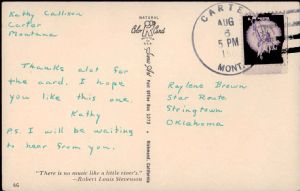 NATURAL
Color Card
Kathy Callison
Carter
Montana
Thanks alot for
the card. I hope
you like this one.
Kathy
P.S. I will be waiting
to hear from you.
"There is no music like a little river's."
—Robert Louis Stevenson
4G
Post Office Box 1273
Richmond, California
CARTER
AUG
6
5 PM
MONT.
Raylene Brown
Star Route
Stringtown
Oklahoma